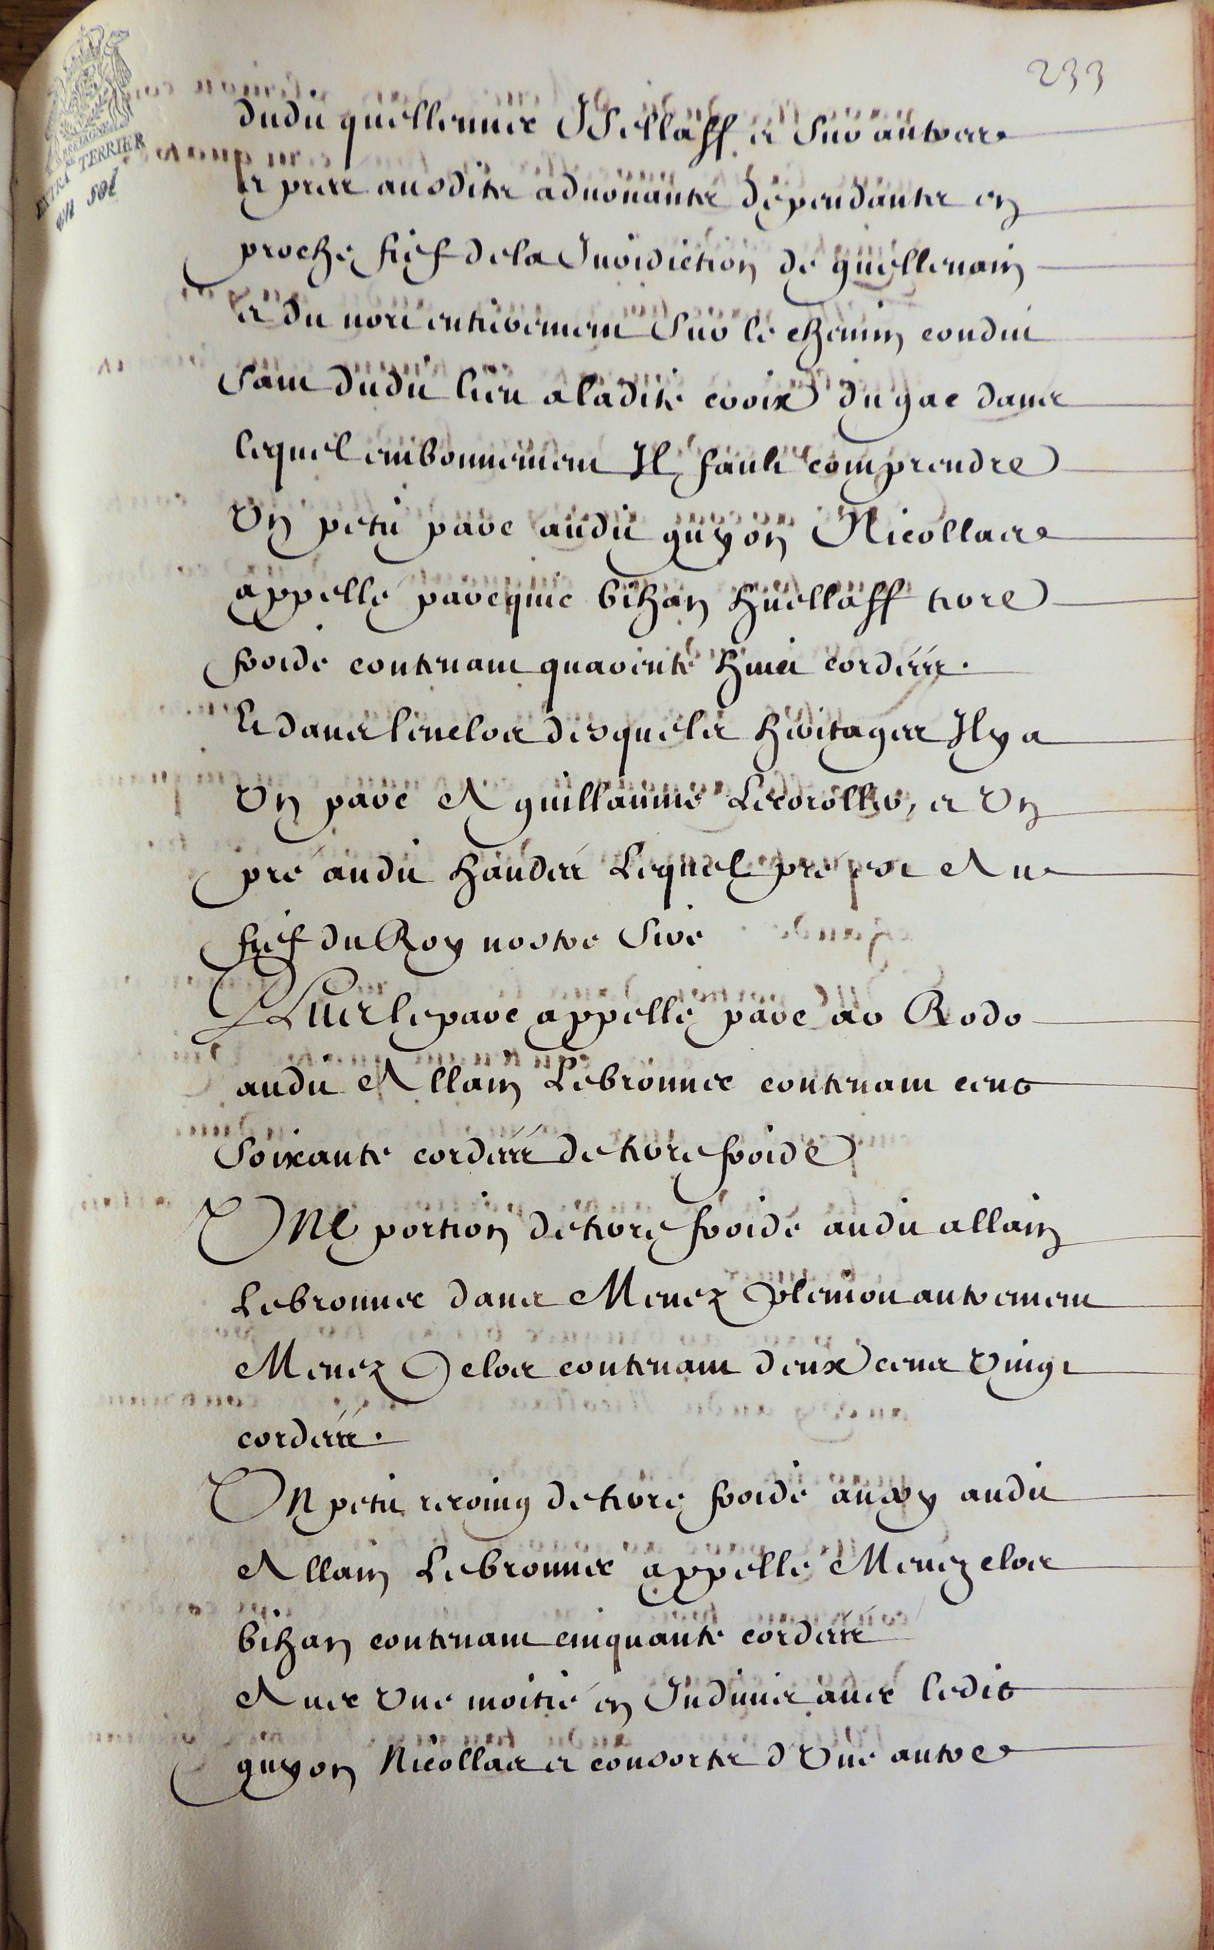 233
EXTRA TERRIER
un sol
dudit quellennec Isellaff et sur autres
et prez ausdits advouants dependants en
proche fief de la Juridiction de guellenain
et du nort entierement sur le chemin condui
sant dudit lieu a ladite croix du gac dans
lequel embornement Il fault comprendre
Un petit parc audit guyon Nicollas
appellé parcquic bihan huellaff terre
froide contenant quarente huict cordes.
Et dans l'enclos desquels heritages Il y a
Un parc A guillaume Lecoroller, et Un
pré audit Lequel pré est Au
fief du Roy nostre Sire
Plus le parc appellé parc ar Rodo
audit Allain Lebronnec contenant cent
soixante cordes de terre froide
Une portion de terre froide audit allain
Lebronnec dans Menez autrement
Menez contenant deux cents vingt
cordes.
Un petit de terre froide aussy audit
Allain Lebronnec appellé Menez clos
bihan contenant cinquante cordes
Avec Une moitié en Indivis avec ledit
guyon Nicollas et consorts d'Une autre